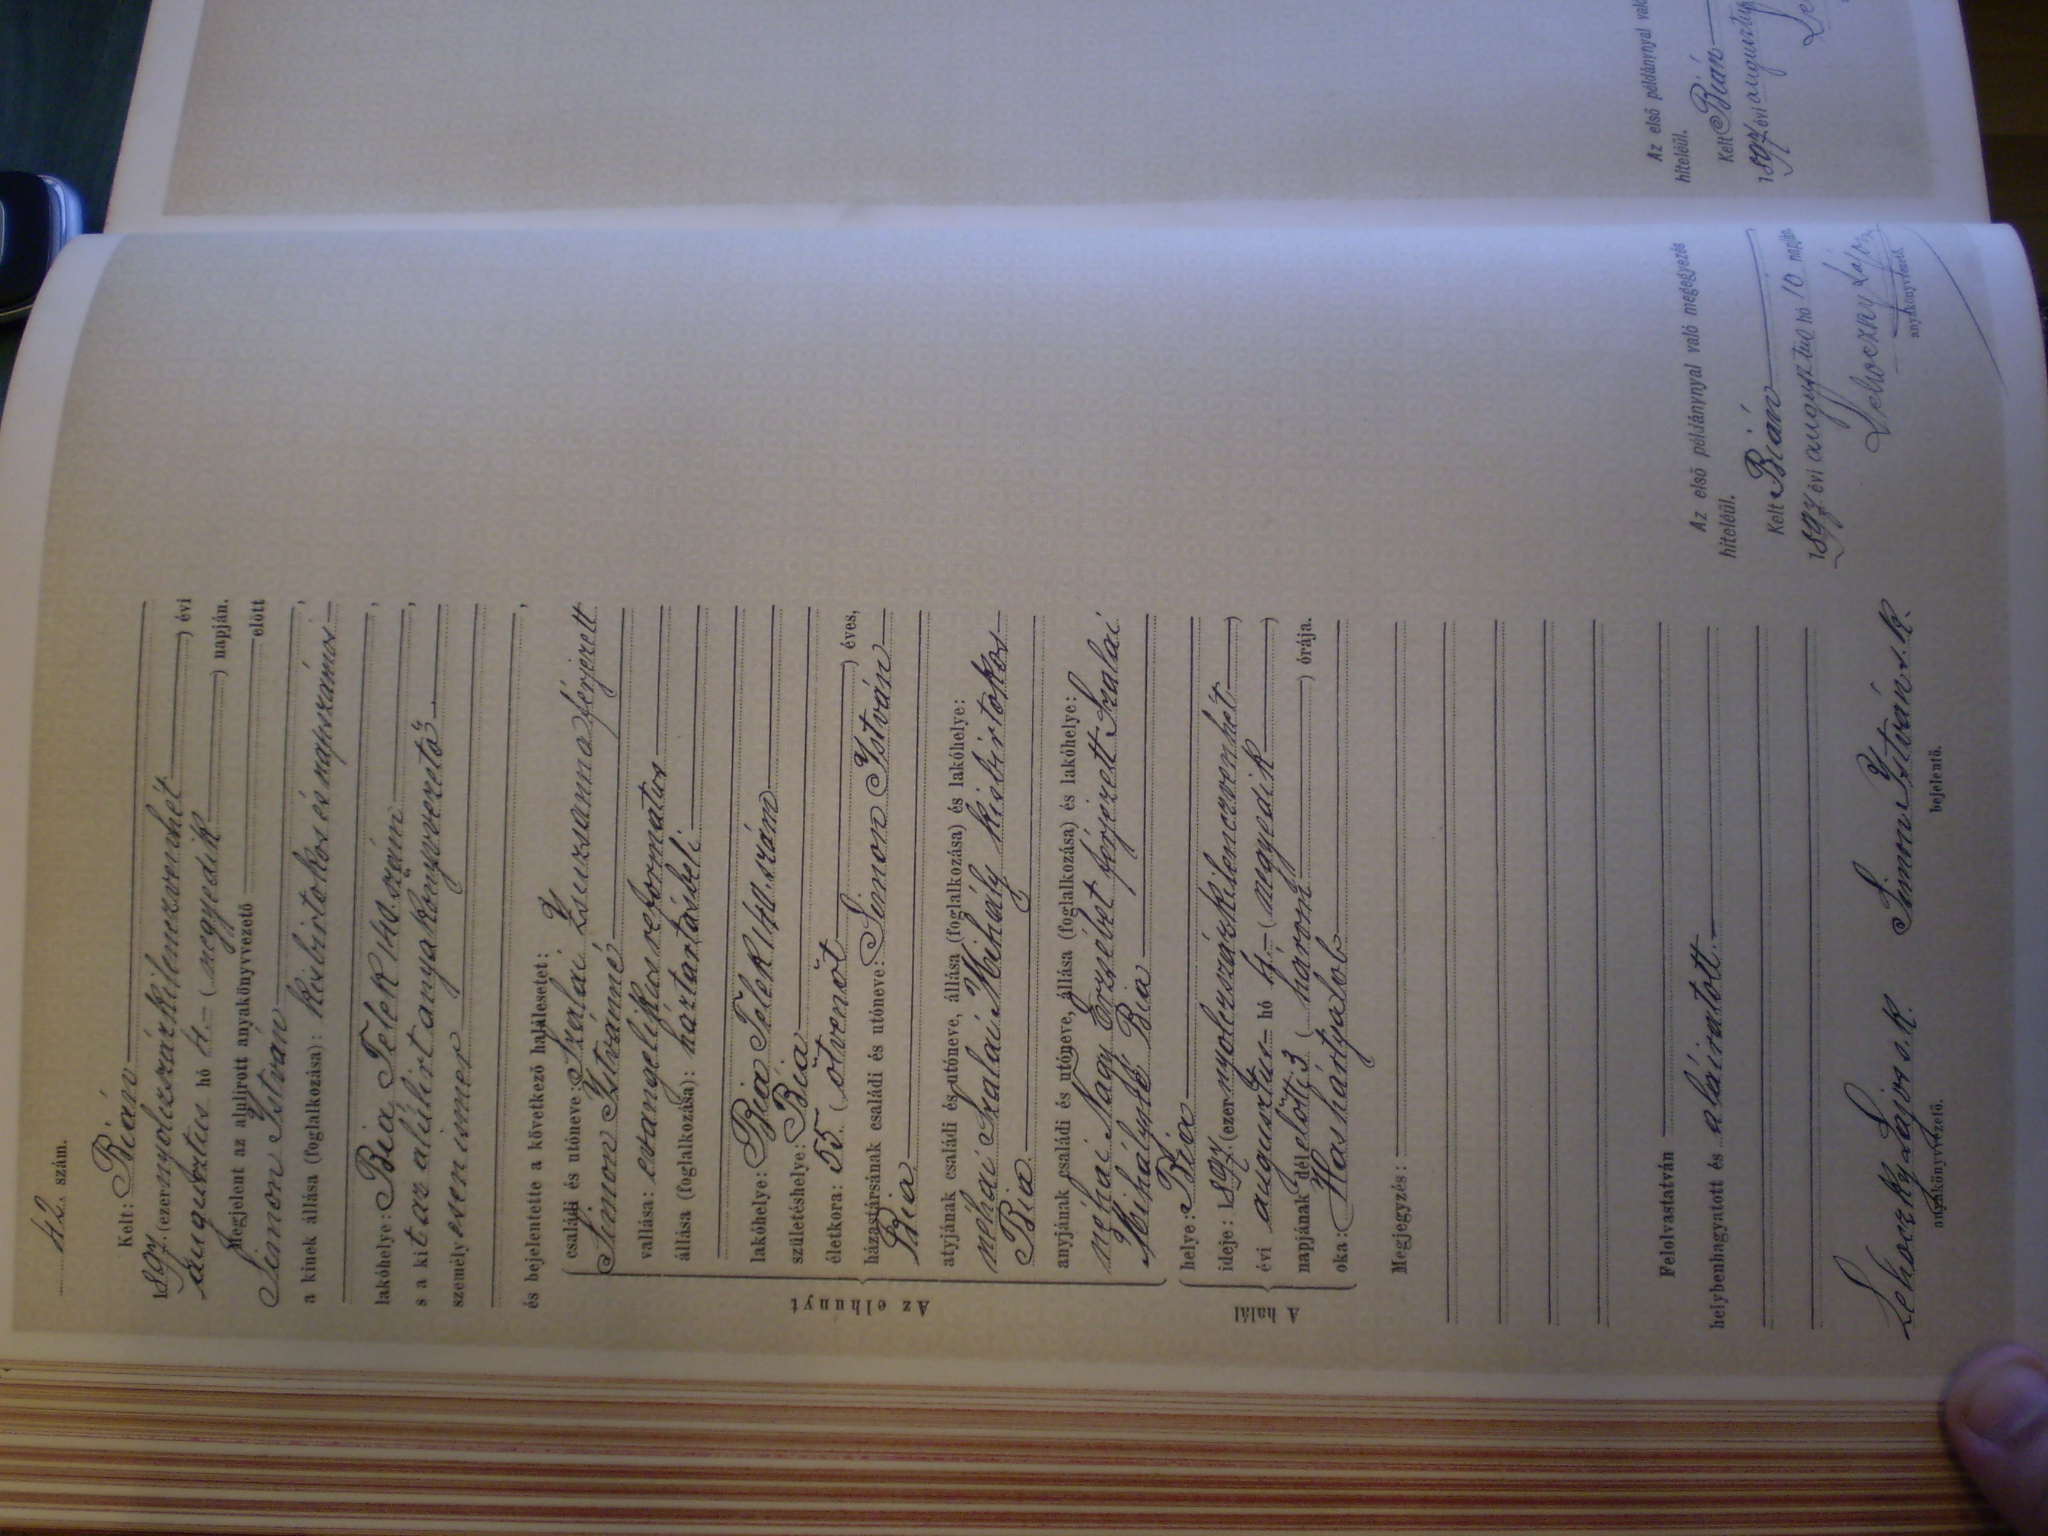 42. szám.
Kelt: Bián
1897. (ezernyolczszázkilenczvenhét) évi
augusztus hó 4.- (negyedik) napján.
Megjelent az alulirott anyakönyvvezető előtt
Simon István,
a kinek állása (foglalkozása): kisbirtokos és napszámos
lakóhelye: Bia Telek 140. szám,
s a kit az alúlirt anyakönyvvezető,
személyesen ismer
,
és bejelentette a következő halálesetet:
Az elhunyt
családi és utóneve: Szalai Zsuzsanna férjezett
Simon Istvánné
vallása: evangelikus református
állása (foglalkozása): háztartásbeli
lakóhelye: Bia Telek 140. szám
születéshelye: Bia
életkora: 55. (ötvenöt) éves,
házastársának családi és utóneve: Simon István
Bia
atyjának családi és utóneve, állása (foglalkozása) és lakóhelye:
néhai Szalai Mihály kisbirtokos
Bia
anyjának családi és utóneve, állása (foglalkozása) és lakóhelye:
néhai Nagy Erzsébet férjezett Szalai
Mihályné Bia
A halál
helye: Bia
ideje: 1897. (ezernyolczszázkilenczvenhét)
évi augusztus hó 4.- (negyedik)
napjának délelőtti 3 (három) órája.
oka: Hashártyalob
Megjegyzés:
Felolvastatván
helybenhagyatott és aláiratott.
Lehoczky Lajos s. k. Simon István s. k.
anyakönyvvezető. bejelentő.
Az első példánynyal való megegyezés
hiteléül.
Kelt Bián
1897 évi augusztus hó 10 napján
Lehoczky Lajos
anyakönyvvezető.
Az első példánynyal való
hiteléül.
Kelt Bián
1897 évi augusztus